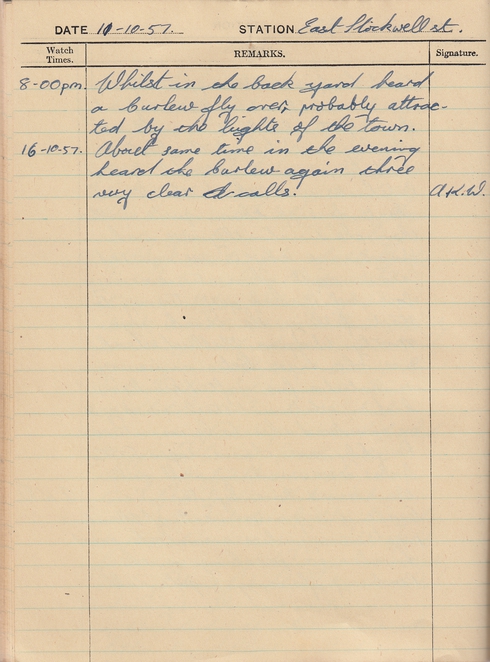 DATE 10-10-57. STATION East Stockwell st.
Watch Times. REMARKS. Signature.
8-00pm. Whilst in the back yard heard
a curlew fly over, probably attrac-
ted by the lights of the town.
16-10-57. About same time in the evening
heard the curlew again three
very clear calls. A.K.W.